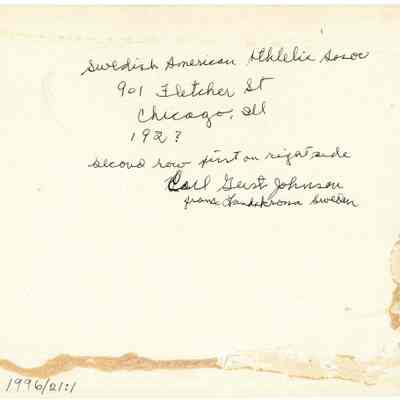 Swedish American Athletic Assoc
901 Fletcher St
Chicago, Ill
192?
second row first on right side
Carl Gust Johnson
from Landskrona Sweden
1996/21:1